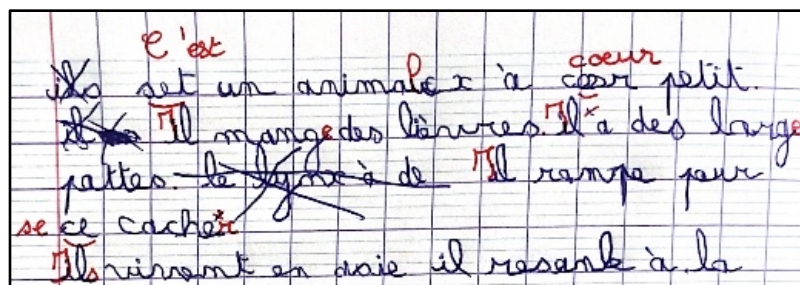 C'est coeur
ils set un animal x à cœr petit.
il Il mange des lièvres. Il a des large
pattes. le lynx à de Il rampe pour
se ce cacher
Ils vivront en it il resank à la